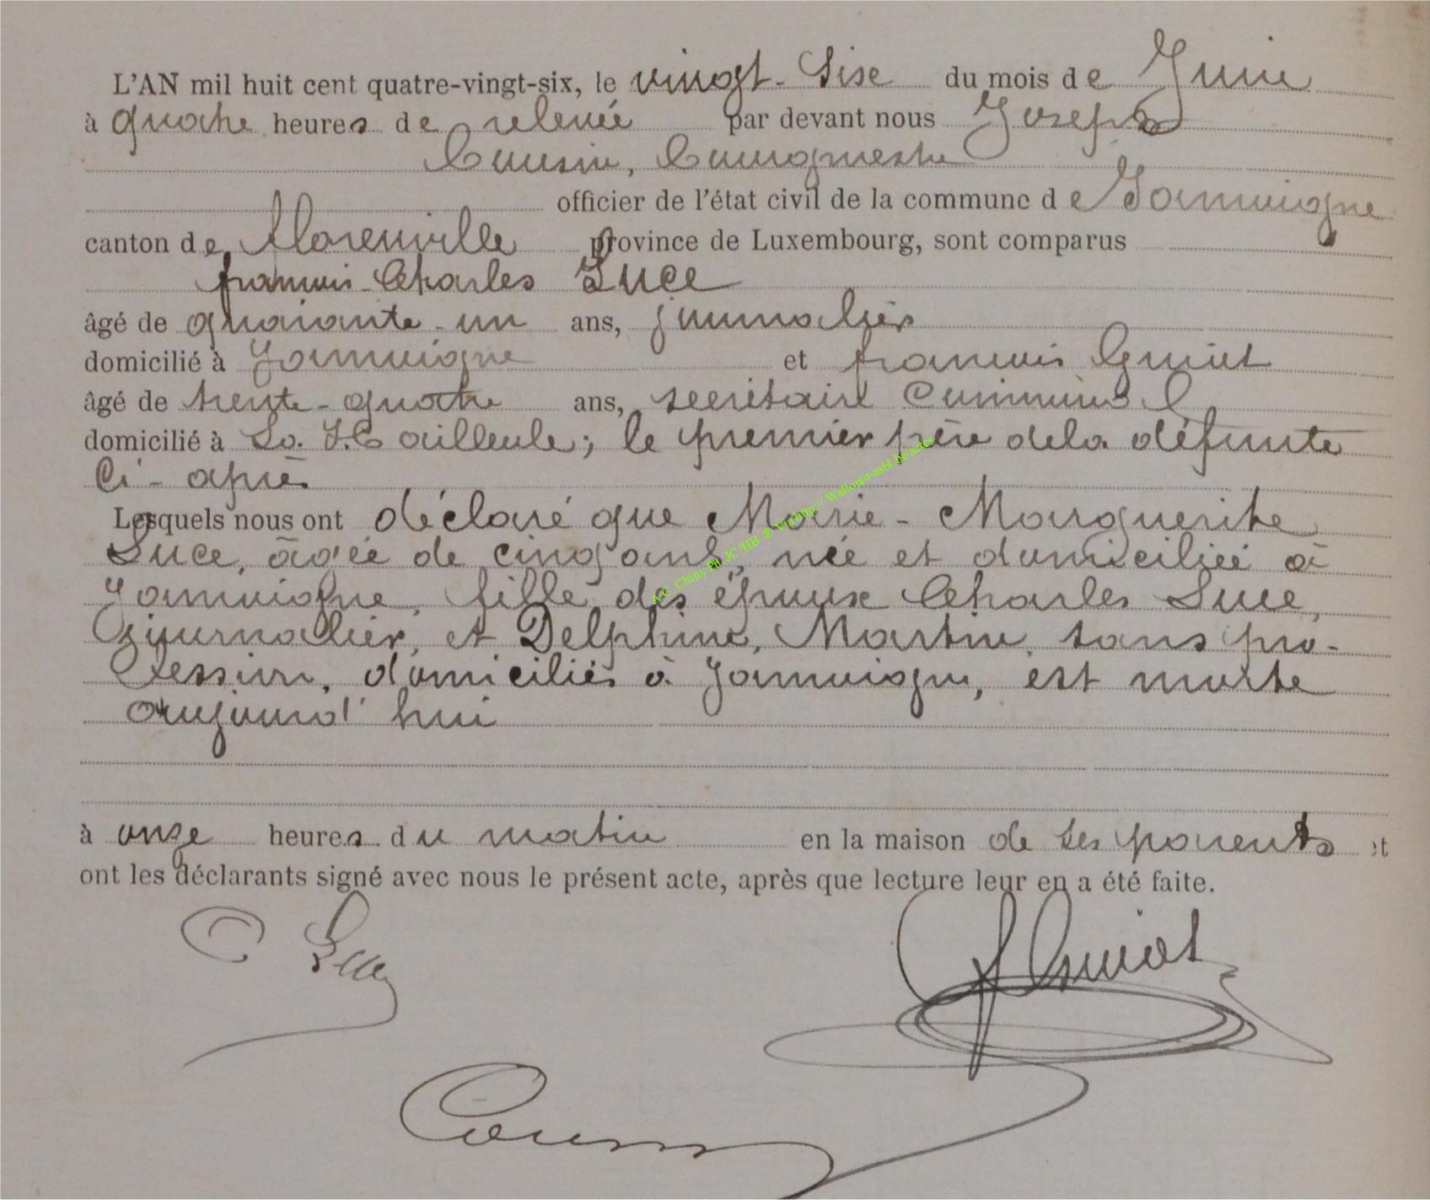 L'AN mil huit cent quatre-vingt-six, le vingt-sise du mois de Juin
à quatre heures de relevée par devant nous Joseph
Cousin, Bourgmestre
officier de l'état civil de la commune de Jamoigne
canton de Florenville province de Luxembourg, sont comparus
francois-Charles Luce
âgé de quarante-un ans, journalier
domicilié à Jamoigne et francois Guiot
âgé de trente-quatre ans, secrétaire communal
domicilié à ; le premier père dela défunte
Ci-après
Lesquels nous ont déclaré que Marie-Marguerite
Luce, âgée de cinq ans, née et domiciliée à
Jamoigne, fille des époux Charles Luce,
journalier, et Delphine, Martin, sans pro-
fession, domiciliés à Jamoigne, est morte
aujourd'hui
à onze heures du matin en la maison de ses parents et
ont les déclarants signé avec nous le présent acte, après que lecture leur en a été faite.
C Luce
f Guiot
Cousin